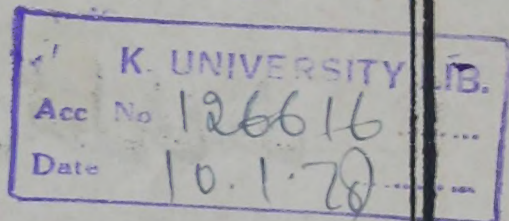 K. UNIVERSITY LIB.
Acc No 126616
Date 10.1.78